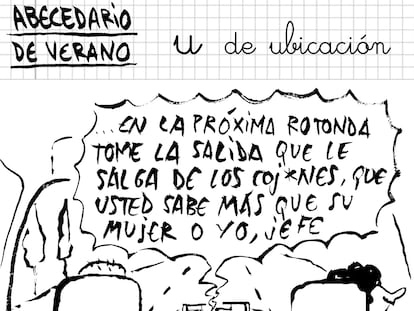 ABECEDARIO
DE VERANO
u de ubicación
...EN LA PRÓXIMA ROTONDA
TOME LA SALIDA QUE LE
SALGA DE LOS COJ*NES, QUE
USTED SABE MÁS QUE SU
MUJER O YO, JEFE